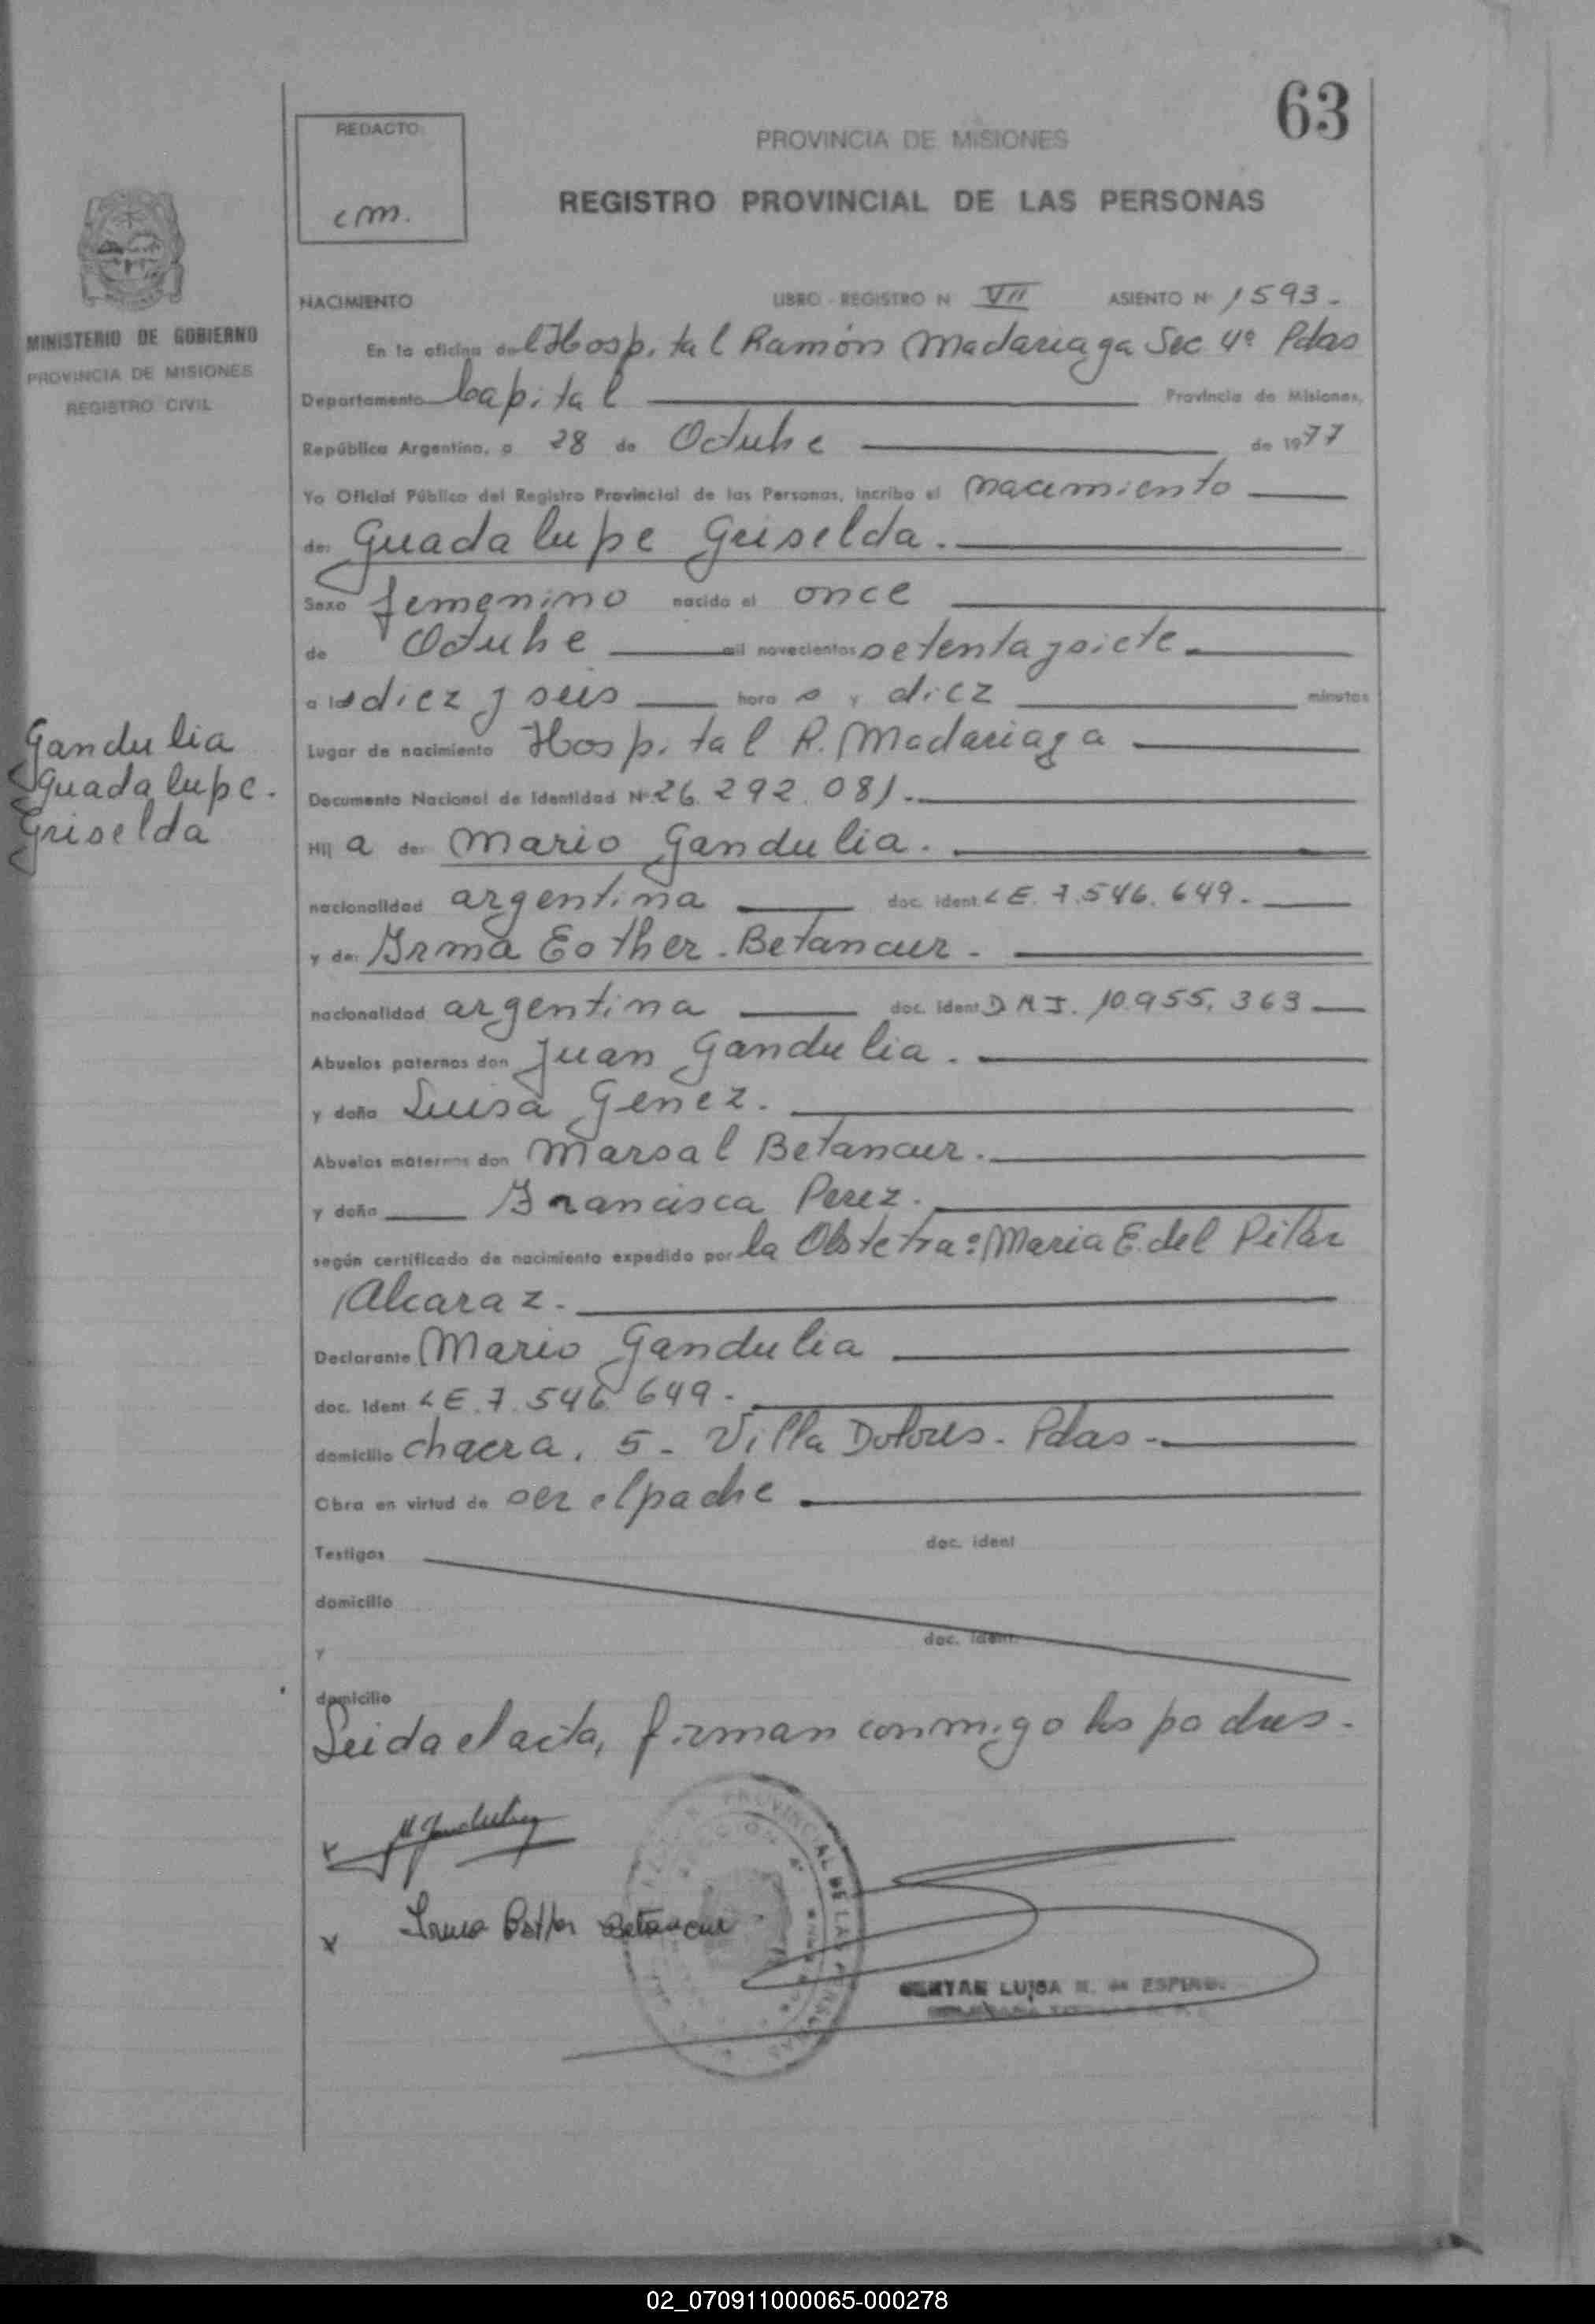 63
REDACTO:
cm.
PROVINCIA DE MISIONES
REGISTRO PROVINCIAL DE LAS PERSONAS
MINISTERIO DE GOBIERNO
PROVINCIA DE MISIONES
REGISTRO CIVIL
NACIMIENTO LIBRO - REGISTRO N VII ASIENTO Nº 1593.-
En la oficina del Hospital Ramón Madariaga Sec 4º Pdas
Departamento Capital Provincia de Misiones,
República Argentina, a 28 de Octubre de 1977
Yo Oficial Público del Registro Provincial de las Personas, incribo el nacimiento
de: Guadalupe Griselda.
Sexo femenino nacido el once
de Octubre mil novecientos setenta y siete
a las diez y seis hora s y diez minutos
Lugar de nacimiento Hospital R. Madariaga
Documento Nacional de Identidad Nº 26.292.081.-
Gandulia
Guadalupe.
Griselda
Hij a de: Mario Gandulia.
nacionalidad argentina doc. ident. LE. 7.546.649.-
y de: Irma Esther Betancur.-
nacionalidad argentina doc. ident. D.N.I. 10.955.363
Abuelos paternos don Juan Gandulia.
y doña Luisa Genez.
Abuelos maternos don Marsal Betancur.
y doña Francisca Perez.
según certificado de nacimiento expedido por la Obstetra: Maria E. del Pilar
Alcaraz.
Declarante Mario Gandulia
doc. Ident LE. 7.546.649.-
domicilio chacra. 5 - Villa Dolores - Pdas -
Obra en virtud de ser el padre
Testigos doc. ident
domicilio
y doc. ident.
domicilio
Leida el acta, firman conmigo los padres.
M Gandulia
Irma Esther Betancur
PROVINCIAL DE LAS PERSONAS
LUISA
02_070911000065-000278